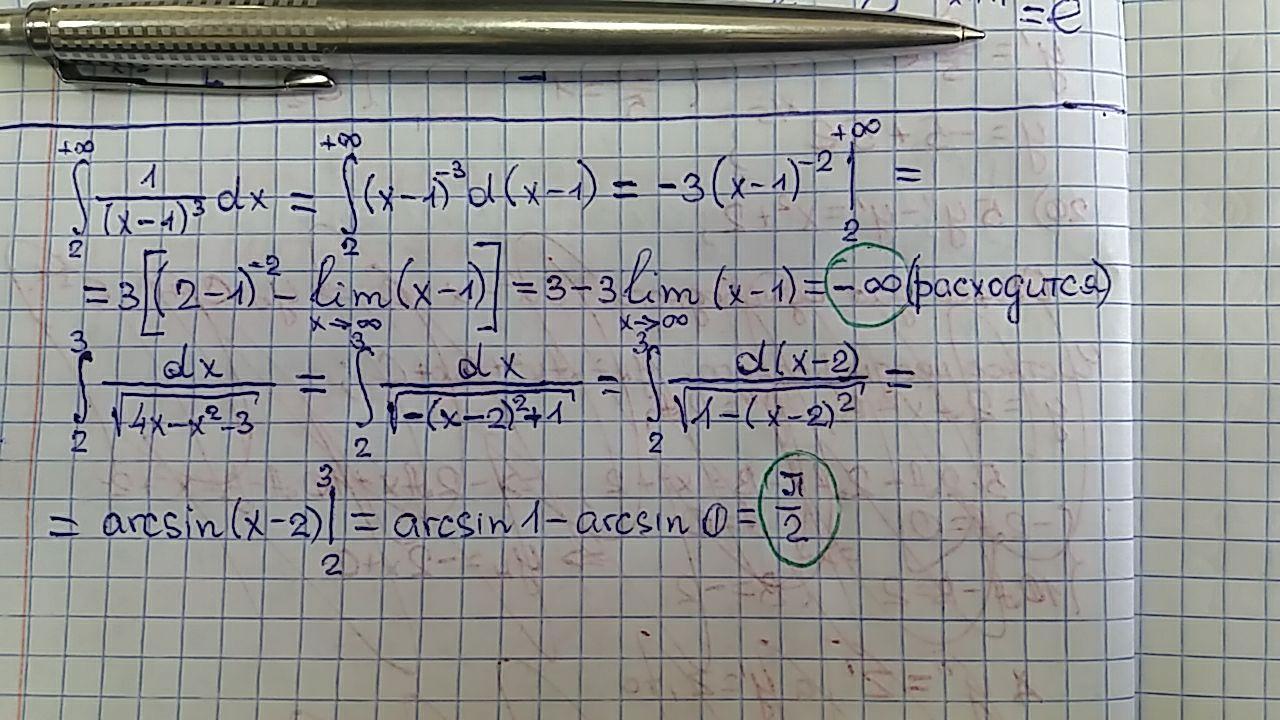 = e
∫₂^{+∞} 1/(x-1)³ dx = ∫₂^{+∞} (x-1)⁻³ d(x-1) = -3(x-1)⁻² |₂^{+∞} =
= 3[(2-1)⁻² - lim_{x→∞} (x-1)] = 3-3 lim_{x→∞} (x-1) = -∞ (расходится)
∫₂³ dx/√(4x-x²-3) = ∫₂³ dx/√(-(x-2)²+1) = ∫₂³ d(x-2)/√(1-(x-2)²) =
= arcsin(x-2) |₂³ = arcsin 1 - arcsin 0 = π/2